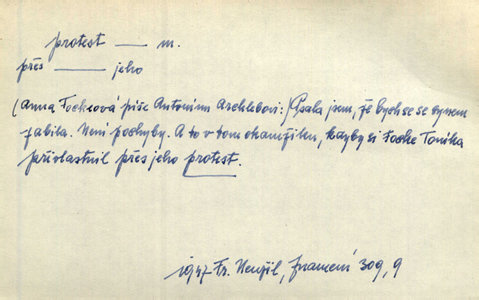 protest — m.
přes — jeho
(Anna Fockeová píše Antonínu Archlebovi:) Psala jsem, že bych se se synem
zabila. Není pochyby. A to v tom okamžiku, kdyby si Focke Toníka
přivlastnil přes jeho protest.
1947 Fr. Neužil, Znamení 309, 9